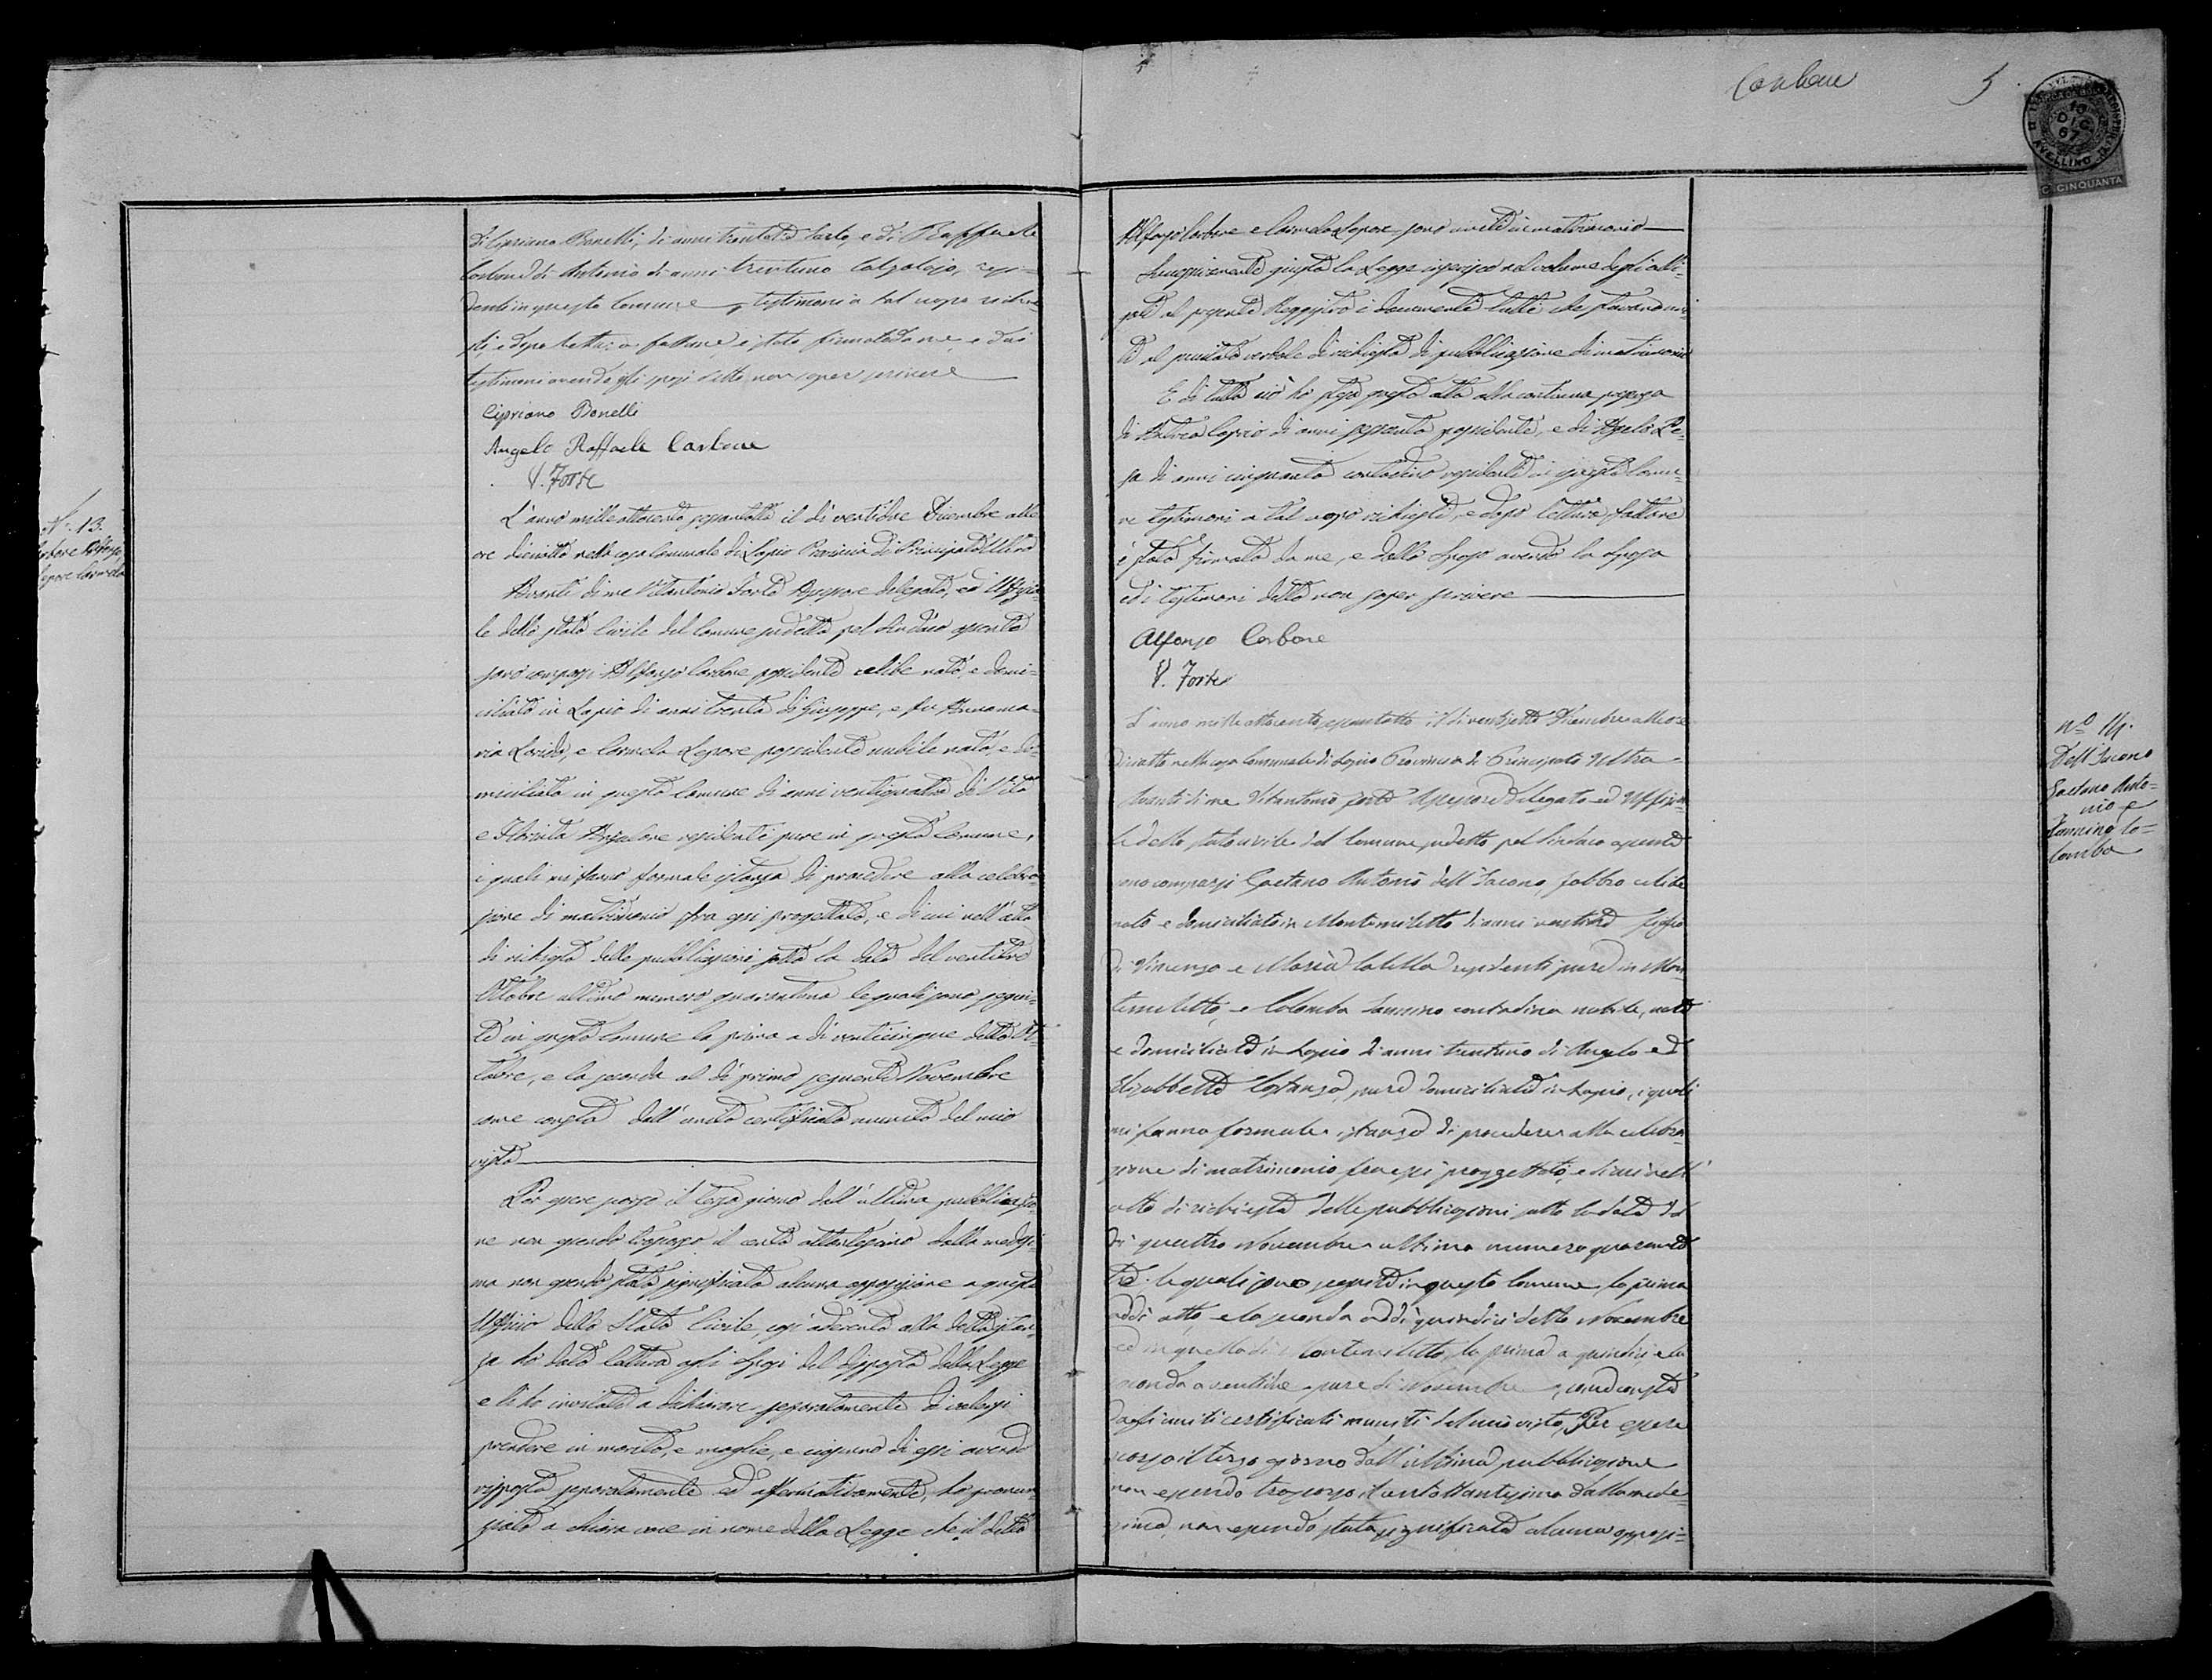 di Cipriano Bonelli, di anni trentatrè Sarto, e di Raffaele
Carbone di Antonio di anni trentuno Calzolajo, resi-
denti in questo Comune, testimoni a tal uopo richie-
sti, e dopo lettura fattane è stato firmato da me, e dai
testimoni avendo gli sposi detto non saper scrivere
Cipriano Bonelli
Angelo Raffaele Carbone
V. Forte
N. 13.
Carbone Alfonso
Lepore Carmela
L'anno mille ottocento sessantotto il dì ventidue Dicembre alle
ore diciotto nella casa Comunale di Lapio Provincia di Principato Ultra
Avanti di me Vitantonio Forte Assessore delegato, ed Uffizia-
le dello stato Civile del Comune sudetto pel Sindaco assente
sono comparsi Alfonso Carbone possidente celibe nato, e domi-
ciliato in Lapio di anni trenta di Giuseppe, e fu Annama-
ria , e Carmela Lepore possidente nubile nata, e do-
miciliata in questo Comune di anni ventiquattro di Vito
e residenti pure in questo Comune,
i quali mi fanno formale istanza di procedere alla celebra-
zione di matrimonio fra essi progettato, e di cui nell'atto
di richiesta delle pubblicazioni sotto la data del ventitre
Ottobre ultimo numero quarantuno le quali sono segui-
te in questo Comune la prima a dì venticinque detto Ot-
tobre, e la seconda al dì primo seguente Novembre
come consta dall'unito certificato munito del mio
visto
Per essere scorso il terzo giorno dall'ultima pubblicazio-
ne non essendo trascorso il cento ottantesimo dalla medesi-
ma non essendo stata significata alcuna opposizione a questo
Uffizio dello Stato Civile, così aderendo alla detta istan-
za ho dato lettura agli Sposi del disposto della Legge
e li ho invitati a dichiarare separatamente di volersi
prendere in marito, e moglie, e ciascuno di essi avendo
risposto separatamente ed affermativamente, ho pronun-
ziato a chiara voce in nome della Legge che il detto
Carbone 5
10
DIC
67
AVELLINO
C. CINQUANTA
Alfonso Carbone e Carmela Lepore sono uniti in matrimonio
Successivamente giusta la Legge inserisco nel volume degli alli-
gati al presente Reggistro i documenti tutti che stavano uni-
ti al precitato verbale di richiesta di pubblicazione di matrimonio
E di tutto ciò ho steso questo atto alla continua presenza
di di anni sessanta possidente, e di
di anni cinquanta contadino residenti in questo Comu-
ne testimoni a tal uopo richiesti, e dopo lettura fattane
è stato firmato da me, e dallo Sposo avendo la Sposa
ed i testimoni detto non saper scrivere
Alfonso Carbone
V. Forte
Nº 14.
Dell'Jacono
Gaetano Anto-
nio e
Iannino Co-
lomba
L'anno mille ottocento sessantotto il dì ventisette Dicembre alle ore
diciotto nella casa Comunale di Lapio Provincia di Principato Ultra
Avanti di me Vitantonio Forte Assessore delegato ed Uffizia-
le dello stato civile del Comune sudetto pel Sindaco assente
sono comparsi Gaetano Antonio dell'Jacono, fabbro celibe
nato e domiciliato in Montemiletto di anni ventitrè figlio
di Vincenzo e Maria residenti pure in Mon-
temiletto, e Colomba Iannino contadina nubile, nata
e domiciliata in Lapio di anni trentuno di Angelo ed
Elisabbetta Costanza, pure domiciliati in Lapio, i quali
mi fanno formale istanza di procedere alla celebra-
zione di matrimonio fra essi proggettato, e di cui nell'
atto di richiesta delle pubblicazioni sotto la data del
dì quattro Novembre ultimo numero quaranta
tre le quali sono seguite in questo Comune la prima
addì otto e la seconda addì quindici detto Novembre
ed in quello di Montemiletto, la prima a quindici e la
seconda a ventidue pure di Novembre, come consta
dagli uniti certificati muniti del mio visto, Per essere
scorso il terzo giorno dall'ultima pubblicazione
non essendo trascorso il centottantesimo dalla mede-
sima, non essendo stata significata alcuna opposi-